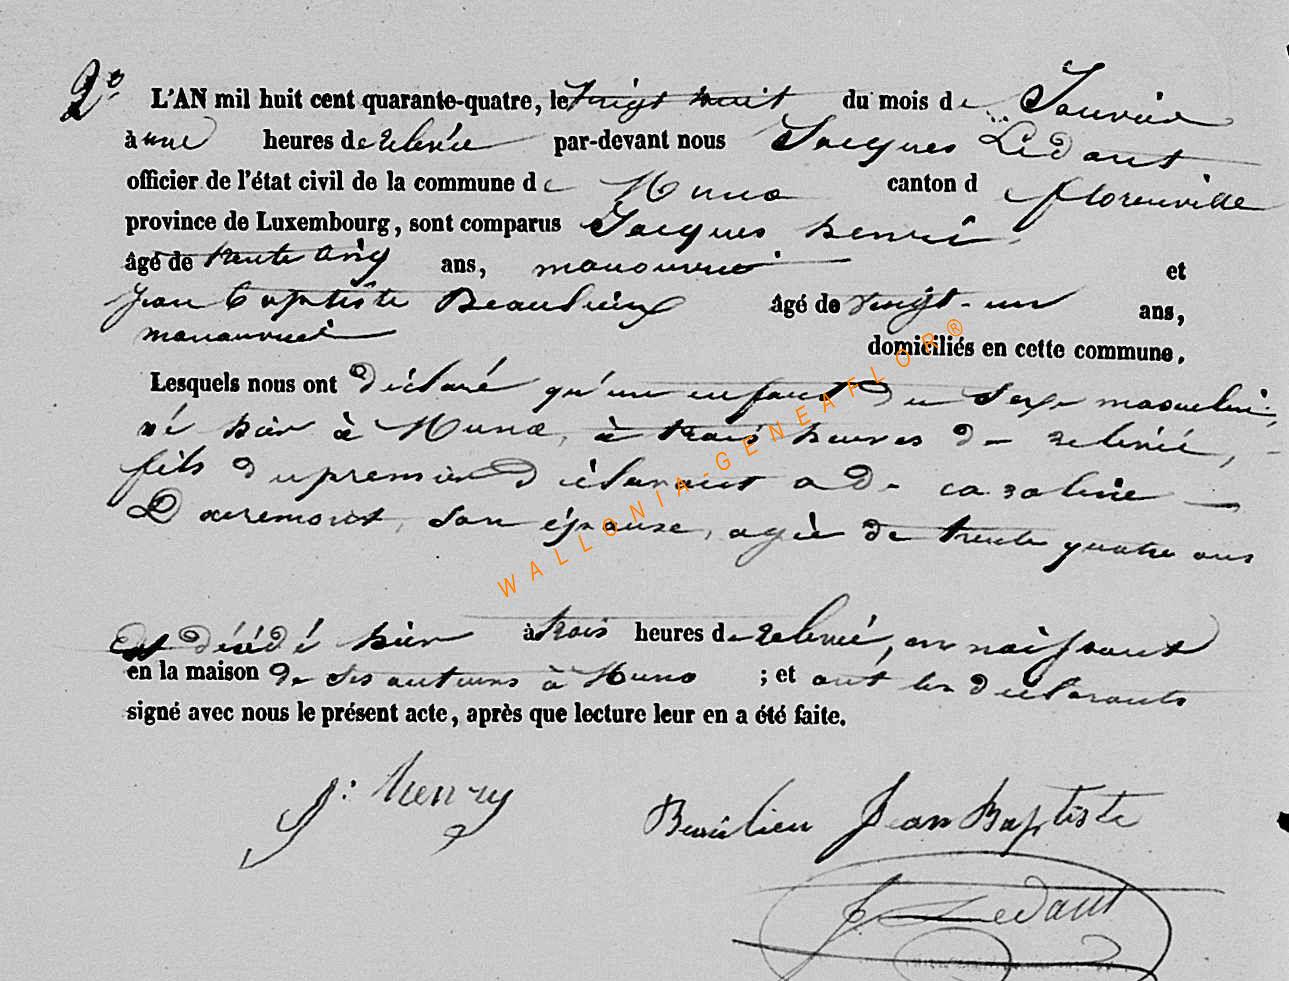 2°
L'AN mil huit cent quarante-quatre, le vingt huit du mois de Janvier
à une heures de relevée par-devant nous Jacques Lédant
officier de l'état civil de la commune de Muno canton d florenville
province de Luxembourg, sont comparus Jacques henri
âgé de trente cinq ans, manouvrier et
Jean baptiste Beaulieux âgé de vingt-un ans,
manouvrier domiciliés en cette commune.
Lesquels nous ont déclaré qu'un enfant du sexe masculin,
né hier à Muno, à trois heures de relevée,
fils du premier déclarant et de caroline
son épouse, agée de trente quatre ans
Est décédé hier à trois heures de relevée, en naissant
en la maison de ses auteurs à Muno ; et ont les déclarants
signé avec nous le présent acte, après que lecture leur en a été faite.
J: henry
Beaulieu Jean Baptiste
J Ledant
WALLONIA-GENEAFLOR®